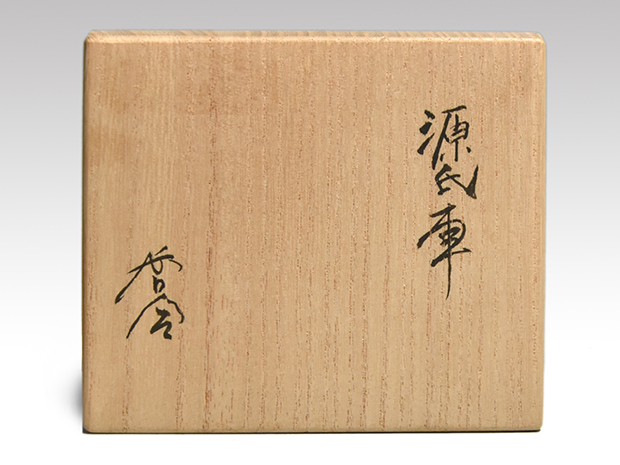 源氏車
香合